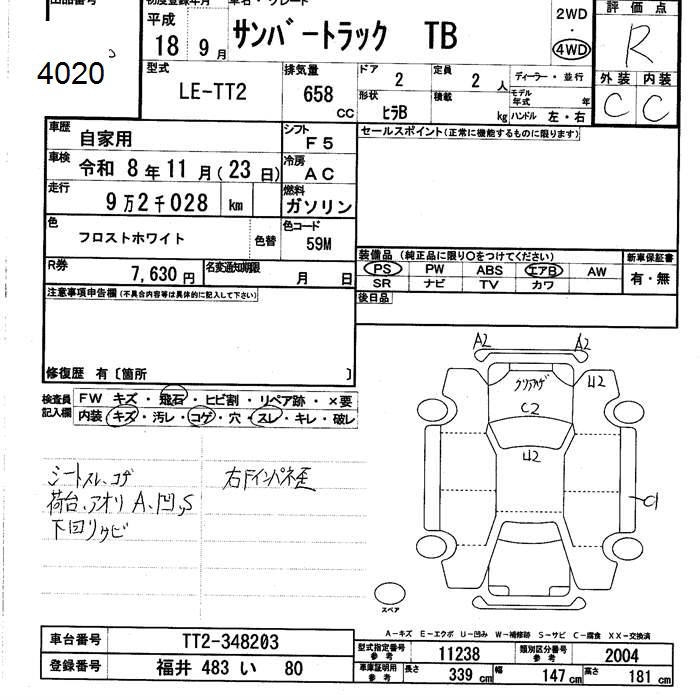 出品番号
4020
初度登録年月
平成
18 9月
車名・グレード
サンバートラック TB
2WD
・
4WD
評価点
R
型式
LE-TT2
排気量
658
CC
ドア
2
定員
2 人
ディーラー・並行
形状
ヒラB
積載
kg
モデル年式 年
ハンドル 左・右
外装 内装
C C
車歴
自家用
シフト
F5
セールスポイント(正常に機能するものに限ります)
車検
令和 8年 11月 (23日)
冷房
AC
走行
9万2千028 km
燃料
ガソリン
色
フロストホワイト
色替
色コード
59M
R券
7,630円
名変通知期限
月 日
装備品 (純正品に限り○をつけてください)
新車保証書
PS PW ABS エアB AW
有・無
SR ナビ TV カワ
後日品
注意事項申告欄(不具合内容等は具体的に記入して下さい)
修復歴 有〔箇所 〕
検査員記入欄
FW キズ・飛石・ヒビ割・リペア跡・×要
内装・キズ・汚レ・コゲ・穴・スレ・キレ・破レ
シートスレ、コゲ
荷台、アオリ A、凹、S
下回りサビ
右ドインパネ歪
A2 A2
クリアハゲ
U2
C2
U2
C1
スペア
A-キズ E-エクボ U-凹み W-補修跡 S-サビ C-腐食 XX-交換済
車台番号
TT2-348203
型式指定番号
参考
11238
類別区分番号
参考
2004
登録番号
福井 483 い 80
車庫証明用
参考
長さ 339 cm
幅 147 cm
高さ 181 cm